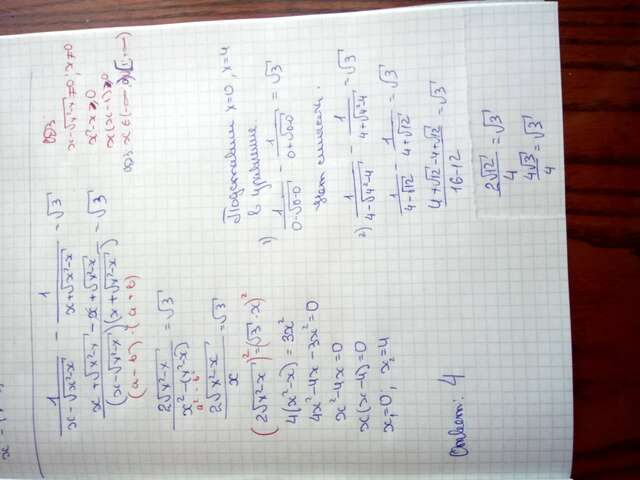 1/(x-√(x²-x)) - 1/(x+√(x²-x)) = √3
(x+√(x²-x) - x+√(x²-x))/((x-√(x²-x))(x+√(x²-x))) = √3
(a - b) · (a + b)
2√(x²-x)/(x²-(x²-x)) = √3
a² - b²
2√(x²-x)/x = √3
(2√(x²-x))² = (√3·x)²
4(x²-x) = 3x²
4x²-4x-3x²=0
x²-4x=0
x(x-4)=0
x₁=0; x₂=4
Ответ: 4
ОДЗ
x²-x≥0
x(x-1)≥0
Подставим x=0, x=4
в уравнение.
1) 1/(0-√(0-0)) - 1/(0+√(0-0)) = √3
нет смысла.
2) 1/(4-√(4²-4)) - 1/(4+√(4²-4)) = √3
1/(4-√12) - 1/(4+√12) = √3
(4+√12-4+√12)/(16-12) = √3
2√12/4 = √3
4√3/4 = √3